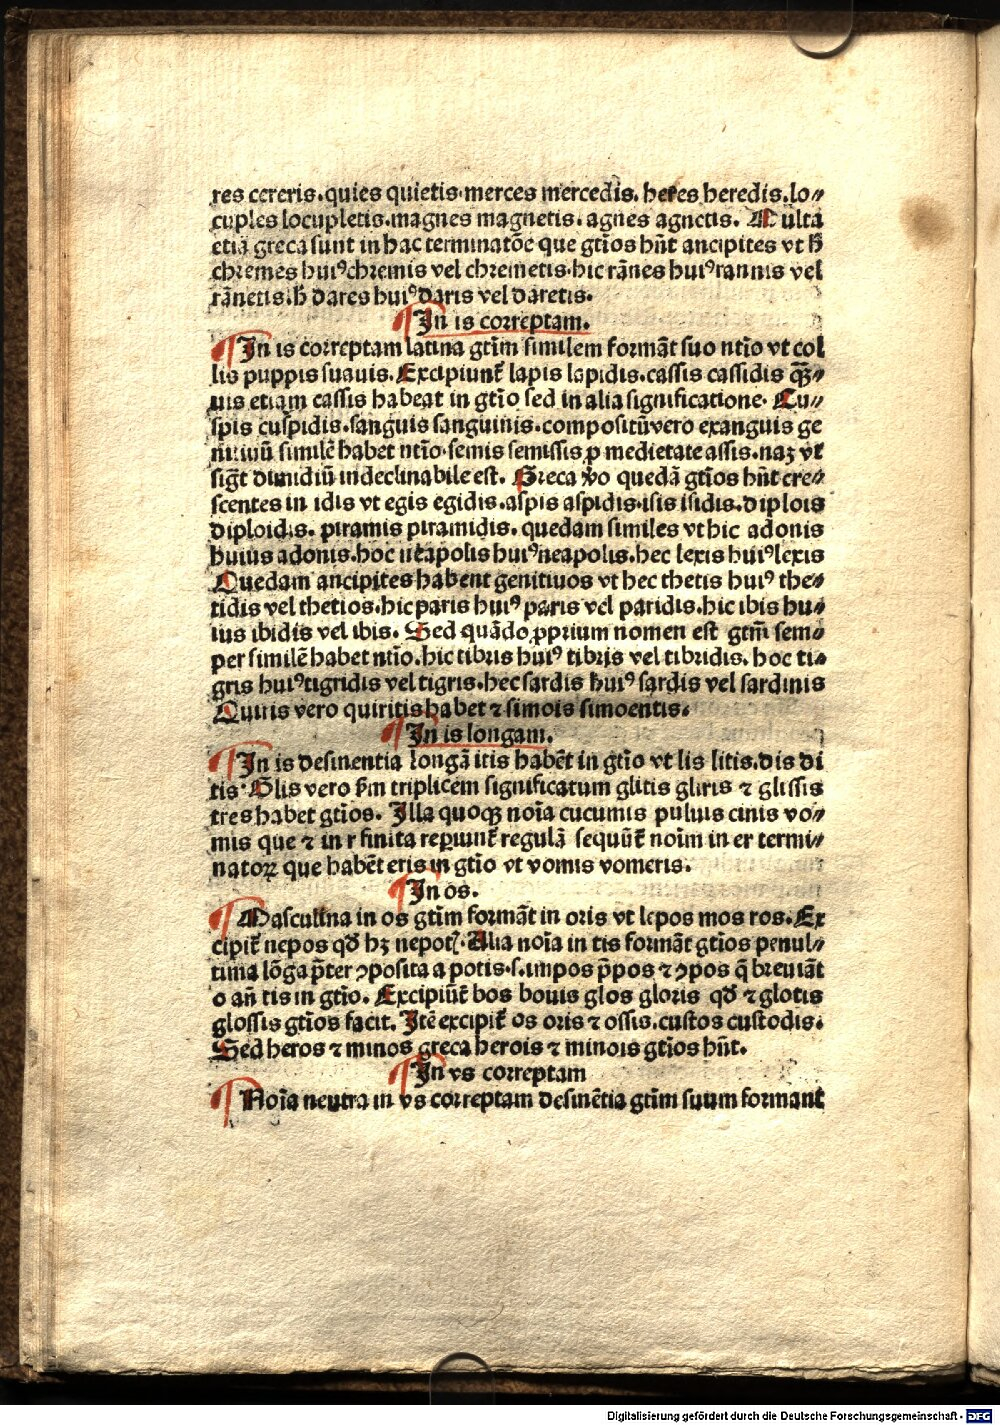 res cereris.quies quietis.merces mercedis.heres heredis.lo⸗
cuples locupletis.magnes magnetis.agnes agnetis. Multa
etiā greca sunt in hac terminatōe que gtīos hn̄t ancipites vt h̄
chremes huiꝰ chremis vel chremetis.hic rānes huiꝰ rannis vel
rānetis.h̄ dares huiꝰ daris vel daretis.
¶ In is correptam.
¶ In is correptam latina gtīm similem formāt suo ntīo vt col
lis puppis suauis. Excipiunt̄ lapis lapidis.cassis cassidis qͣꝫ⸗
uis etiam cassis habeat in gtīo sed in alia significatione. Cu⸗
spis cuspidis.sanguis sanguinis.compositū vero exanguis ge
nitiuū similē habet ntīo.semis semissis ꝓ medietate assis.naꝫ vt
sigt̄ dimidiū indeclinabile est. Greca v̄o quedā gtīos hn̄t cre⸗
scentes in idis vt egis egidis.aspis aspidis.isis isidis.diplois
diploidis. piramis piramidis. quedam similes vt hic adonis
huius adonis.hoc neapolis huiꝰ neapolis.hec lexis huiꝰ lexis
Quedam ancipites habent genitiuos vt hec thetis huiꝰ the⸗
tidis vel thetios.hic paris huiꝰ paris vel paridis.hic ibis hu⸗
ius ibidis vel ibis. Sed quādo ꝓprium nomen est gtm̄ sem⸗
per similē habet ntīo.hic tibris huiꝰ tibris vel tibridis. hoc ti⸗
gris huiꝰ tigridis vel tigris.hec sardis huiꝰ sardis vel sardinis
Quiris vero quiritis habet ⁊ simois simoentis.
¶ In is longam.
¶ In is desinentia longā itis habēt in gtīo vt lis litis.dis di
tis. Glis vero s̄m triplicem significatum glitis gliris ⁊ glissis
tres habet gtīos. Illa quoqꝫ noīa cucumis puluis cinis vo⸗
mis que ⁊ in r finita reꝑiunt̄ regulā sequūt̄ noīm in er termi⸗
natoꝝ que habēt eris in gtīo vt vomis vomeris.
¶ In os.
¶ Masculina in os gtīm formāt in oris vt lepos mos ros. Ex
cipit̄ nepos qd̄ hꝫ nepotꝭ. Alia noīa in tis formāt gtīos penul⸗
tima lōga p̄ter ꝯposita a potis.s.impos p̄pos ⁊ ꝯpos q̄ breuiāt
o an̄ tis in gtīo. Excipiūt̄ bos bouis glos gloris qd̄ ⁊ glotis
glossis gtīos facit. Itē excipit̄ os oris ⁊ ossis.custos custodis.
Sed heros ⁊ minos greca herois ⁊ minois gtīos hn̄t.
¶ In vs correptam
¶ Noīa neutra in vs correptam desinētia gtīm suum formant
Digitalisierung gefördert durch die Deutsche Forschungsgemeinschaft - DFG